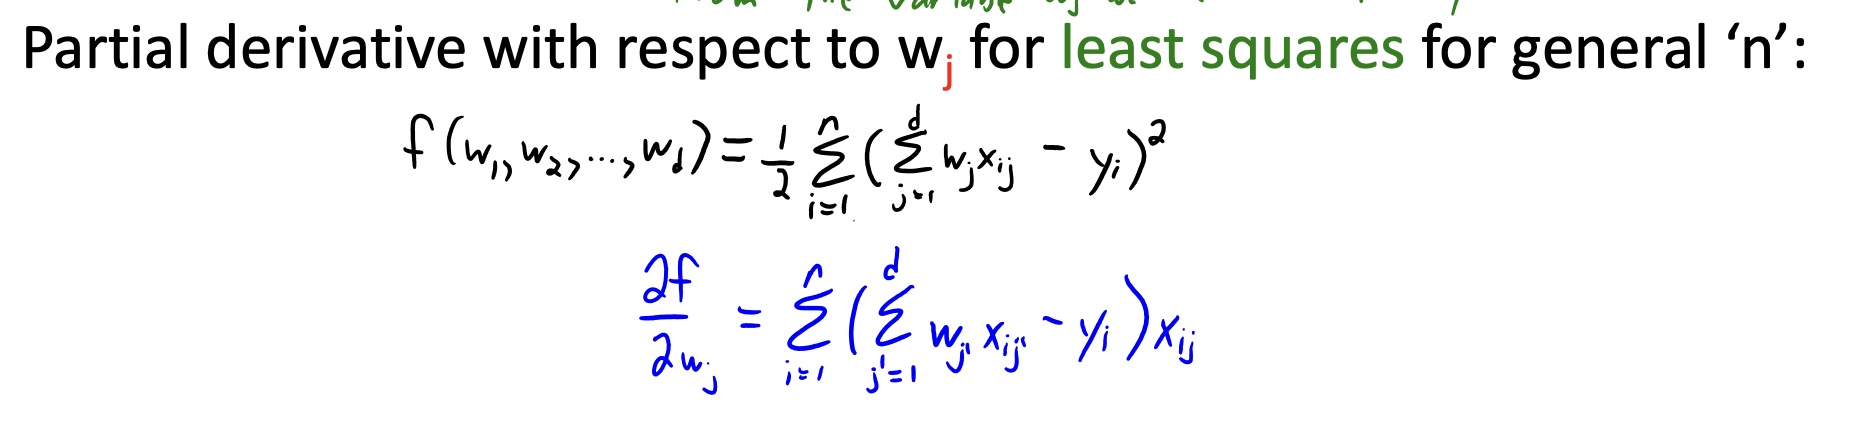 from the variable
Partial derivative with respect to wⱼ for least squares for general ‘n’:
f(w₁, w₂, ..., w_d) = 1/2 Σ_{i=1}^{n} (Σ_{j=1}^{d} wⱼxᵢⱼ - yᵢ)²
∂f/∂wⱼ = Σ_{i=1}^{n} (Σ_{j'=1}^{d} w_{j'} x_{ij'} - yᵢ) xᵢⱼ